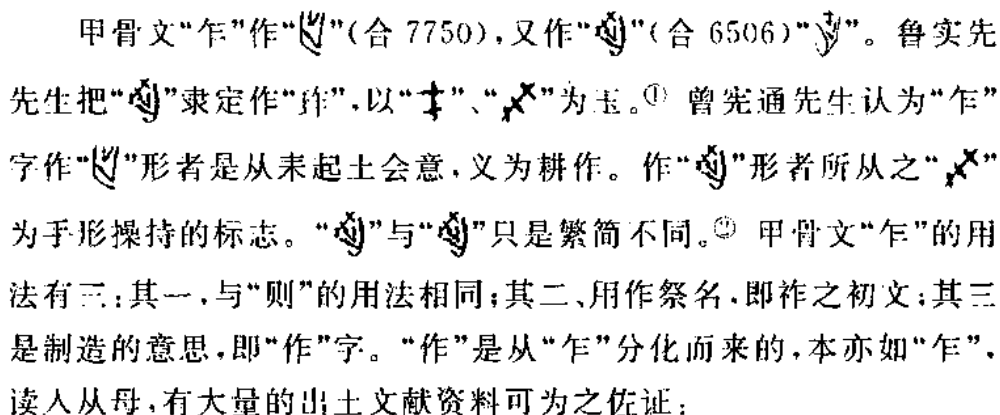 甲骨文“乍”作“”(合 7750),又作“”(合 6506)“”。鲁实先
先生把“”隶定作“𤤰”,以“”、“”为玉。① 曾宪通先生认为“乍”
字作“”形者是从耒起土会意,义为耕作。作“”形者所从之“”
为手形操持的标志。“”与“”只是繁简不同。② 甲骨文“乍”的用
法有三:其一,与“则”的用法相同;其二、用作祭名,即祚之初文;其三
是制造的意思,即“作”字。“作”是从“乍”分化而来的,本亦如“乍”,
读入从母,有大量的出土文献资料可为之佐证: